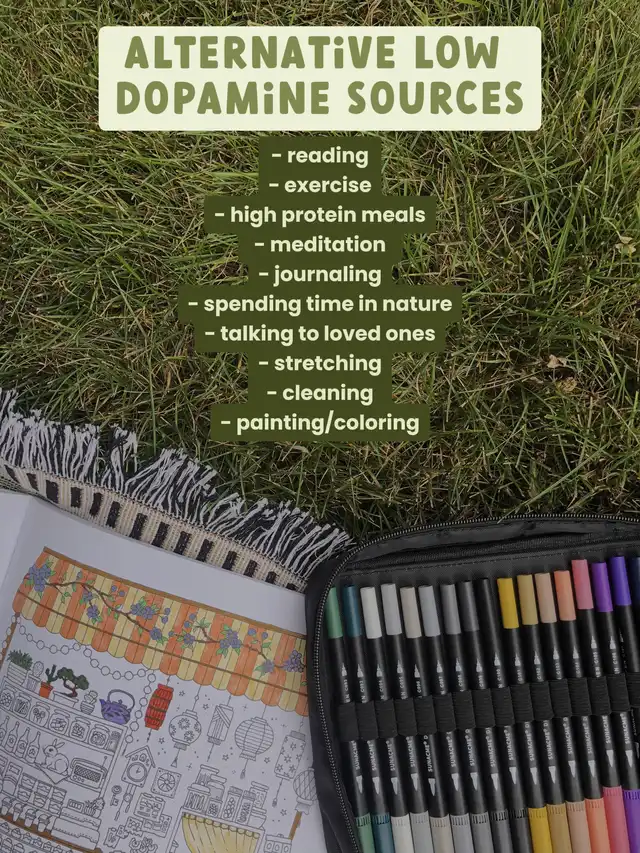 ALTERNATIVE LOW
DOPAMINE SOURCES
- reading
- exercise
- high protein meals
- meditation
- journaling
- spending time in nature
- talking to loved ones
- stretching
- cleaning
- painting/coloring